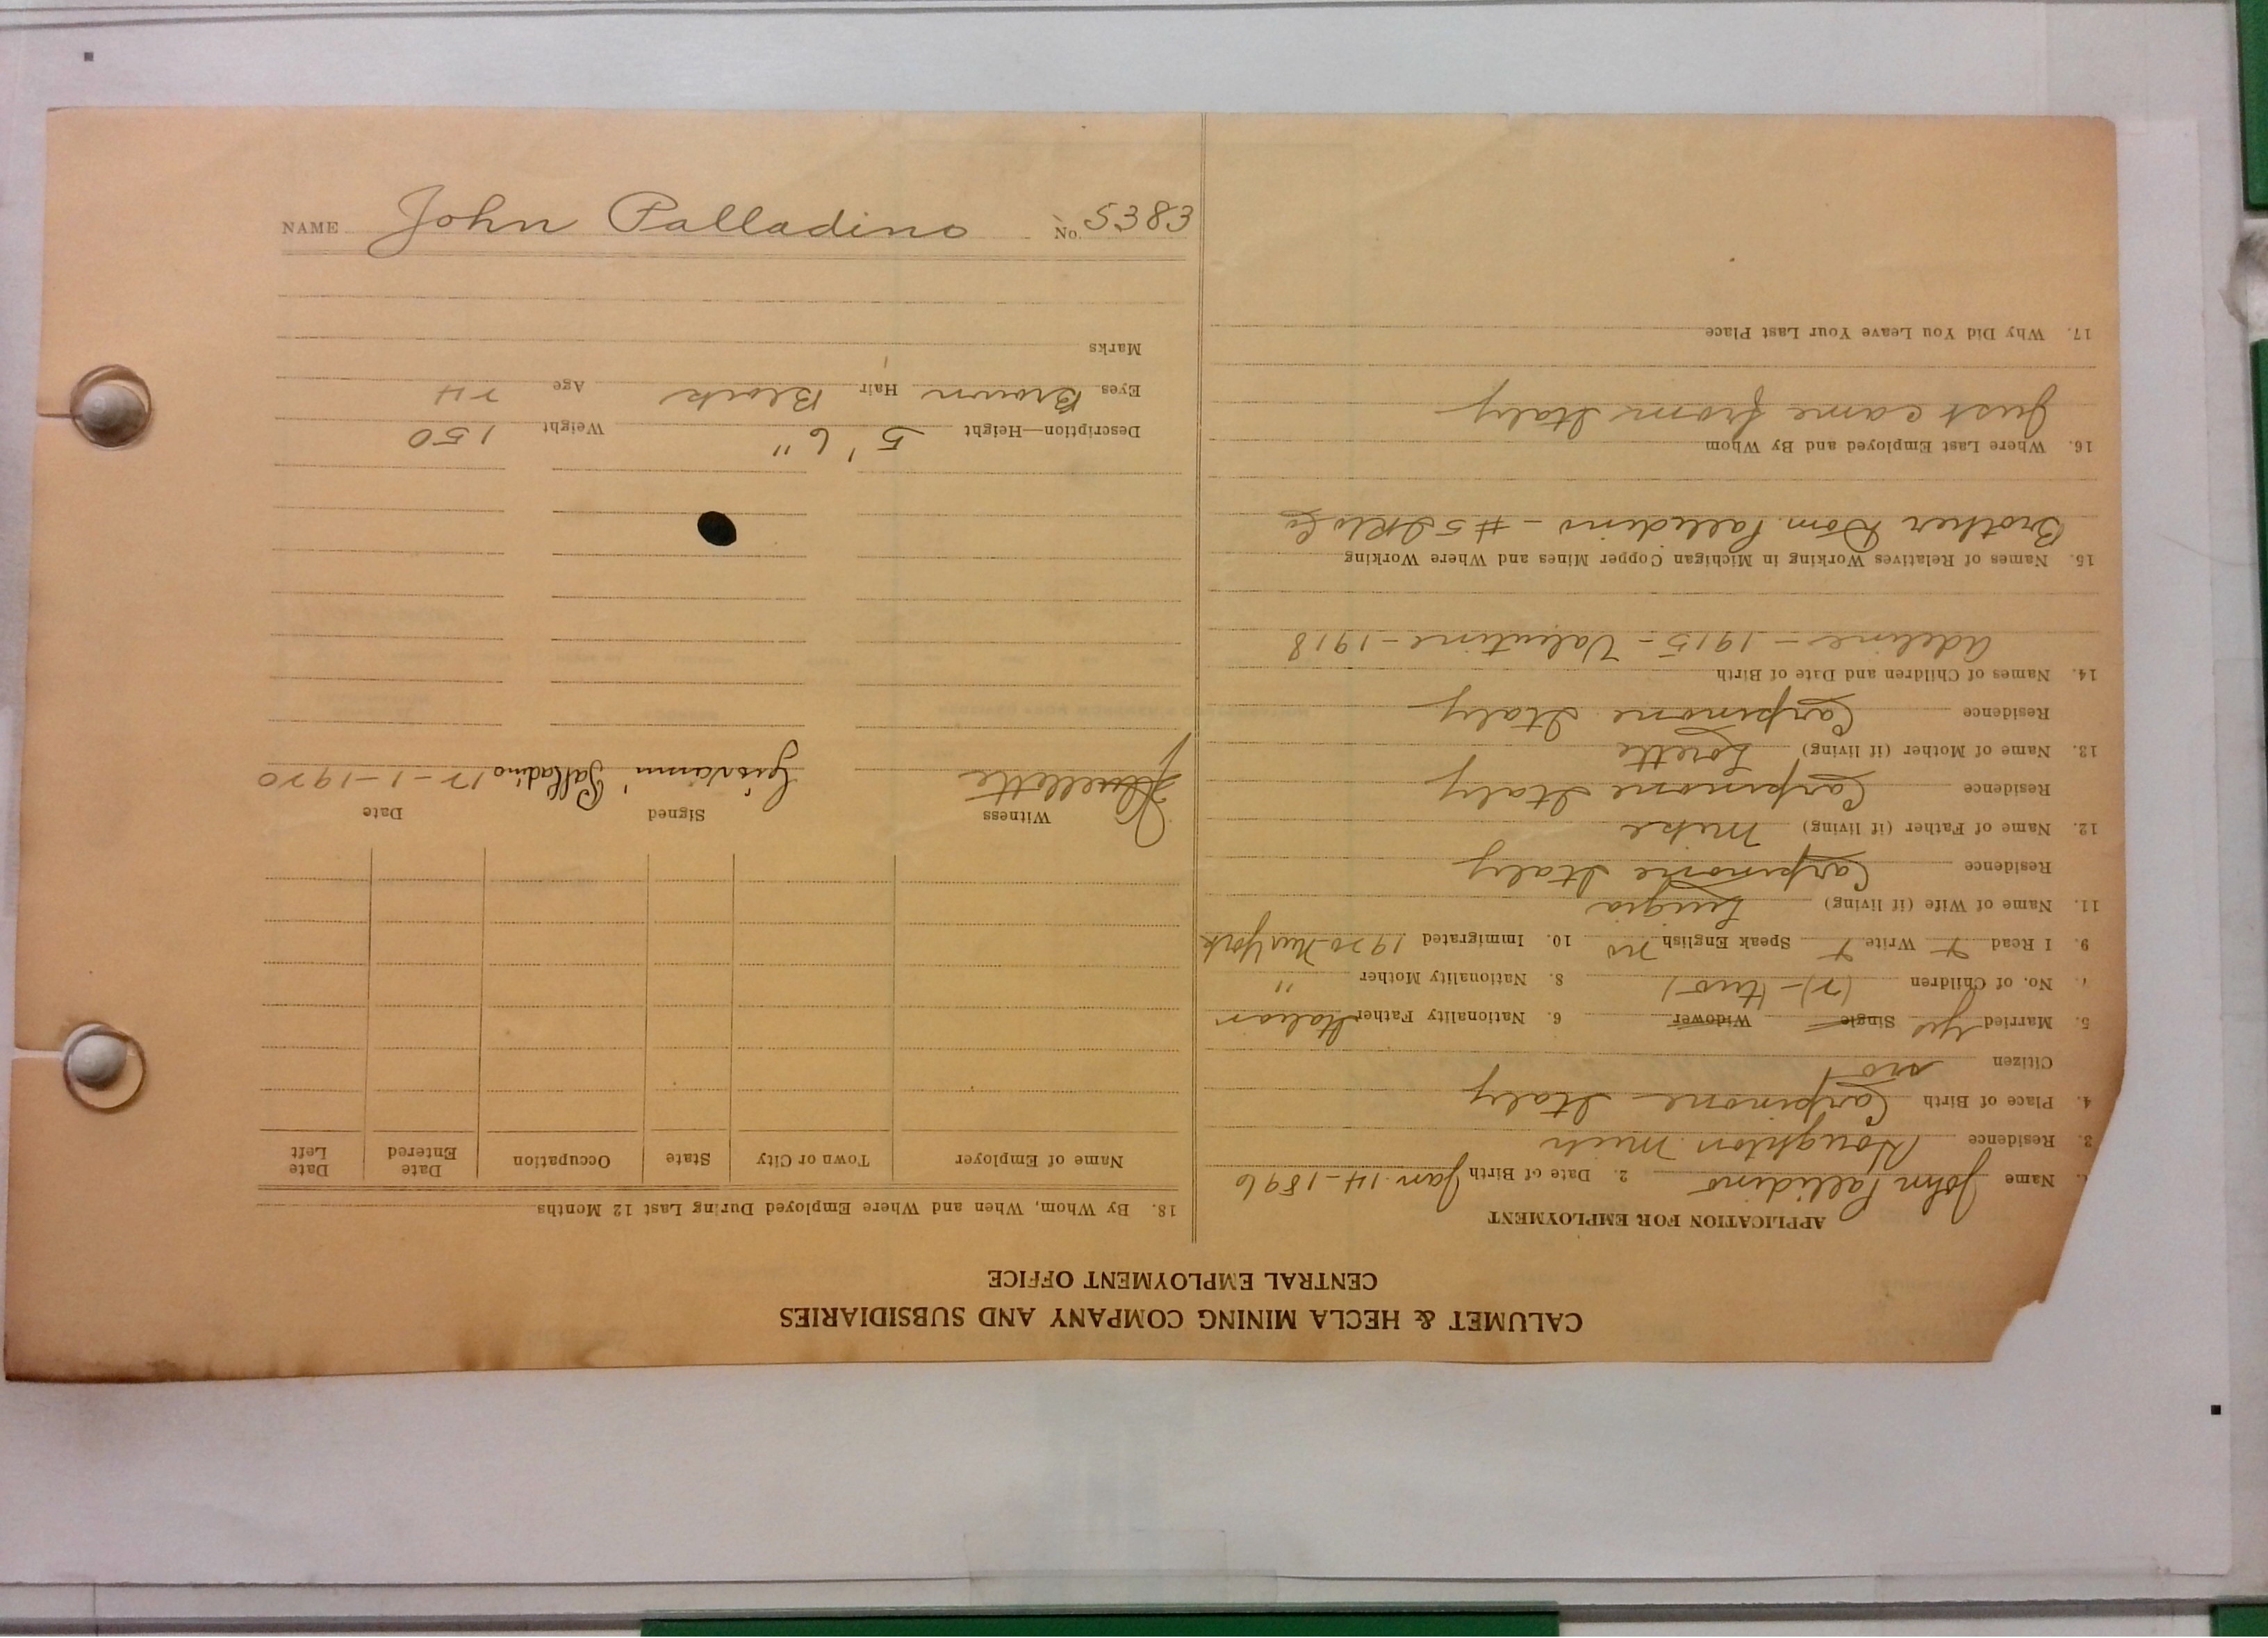 CALUMET & HECLA MINING COMPANY AND SUBSIDIARIES
CENTRAL EMPLOYMENT OFFICE
APPLICATION FOR EMPLOYMENT
Name John Palledino 2. Date of Birth Jan. 14-1896
3. Residence Houghton Mich
4. Place of Birth Carpinone Italy
Citizen not
5. Married Yes Single Widower 6. Nationality Father Italian
7. No. of Children (2)-(two) 8. Nationality Mother "
9. I Read + Write + Speak English no 10. Immigrated 1920 New York
11. Name of Wife (if living)
Residence Carpinone Italy
12. Name of Father (if living) Mike
Residence Carpinone Italy
13. Name of Mother (if living) Lorette
Residence Carpinone Italy
14. Names of Children and Date of Birth
Adeline - 1915 - Valentine - 1918
15. Names of Relatives Working in Michigan Copper Mines and Where Working
Brother Dom. Palledino - #5
16. Where Last Employed and By Whom
Just came from Italy
17. Why Did You Leave Your Last Place
18. By Whom, When and Where Employed During Last 12 Months
Name of Employer Town or City State Occupation Date Entered Date Left
Witness Signed Date
Giovanni Palladino 12-1-1920
Description—Height 5' 6" Weight 150
Eyes Brown Hair Black Age 24
Marks
NAME John Palladino No. 5383